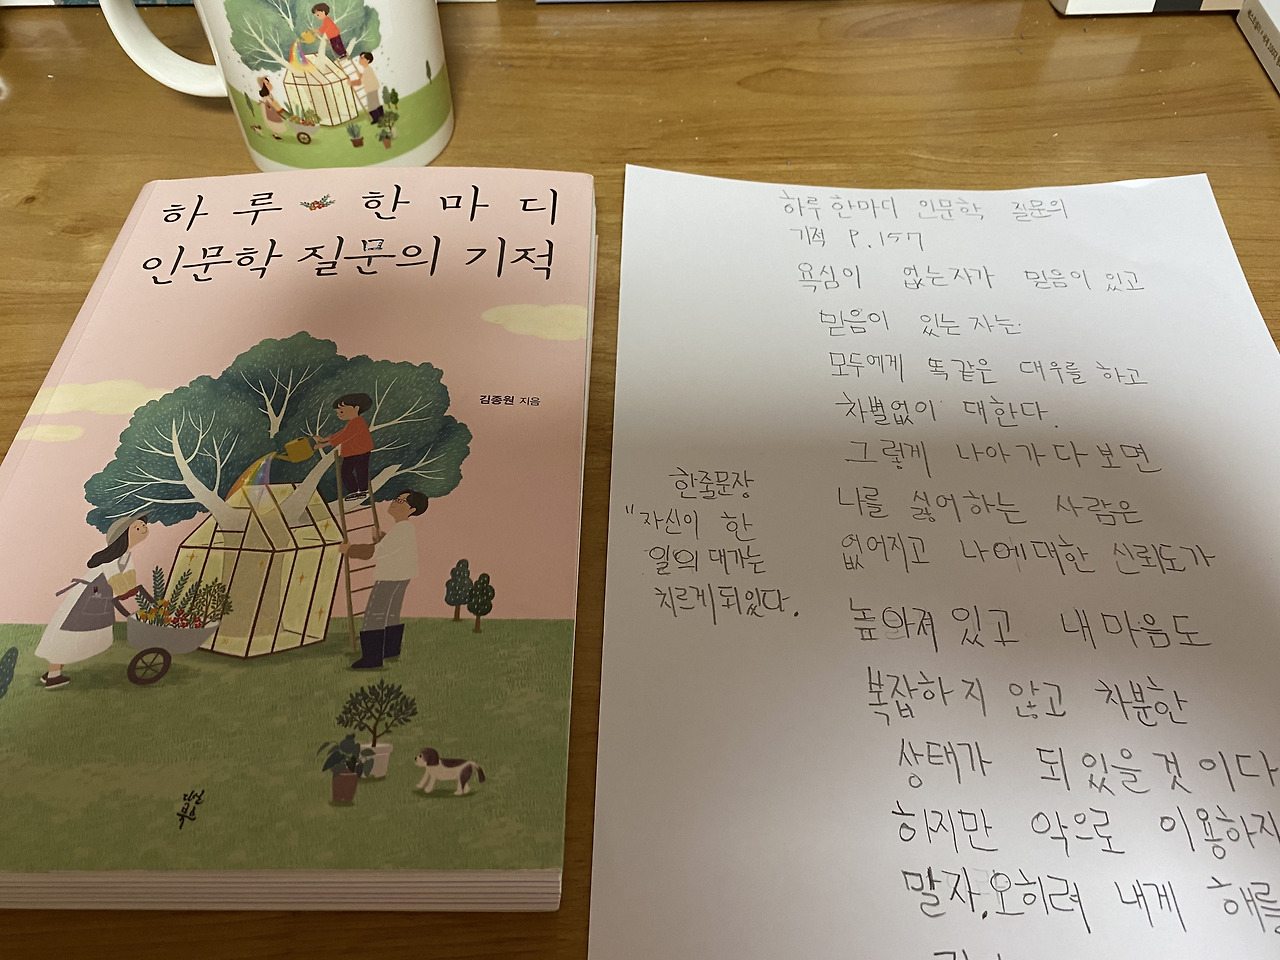 하루 한마디
인문학 질문의 기적
김종원 지음
하루 한마디 인문학 질문의
기적 P.157
욕심이 없는자가 믿음이 있고
믿음이 있는자는
모두에게 똑같은 대우를 하고
차별없이 대한다.
그렇게 나아가다보면
나를 싫어하는 사람은
없어지고 나에대한 신뢰도가
높아져있고 내마음도
복잡하지 않고 차분한
상태가 되있을것이다
하지만 악으로 이용하지
말자.오히려 내게 해를
한줄문장
"자신이 한
일의 대가는
치르게되있다.